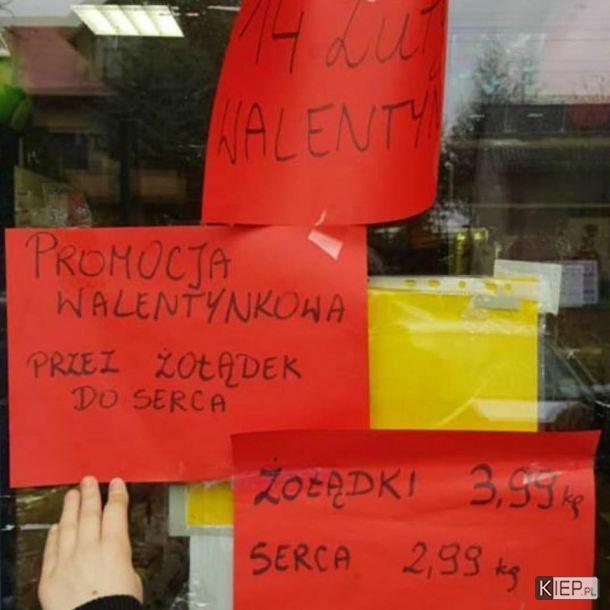 14 LUTY
WALENTYN
PROMOCJA
WALENTYNKOWA
PRZEZ ŻOŁĄDEK
DO SERCA
ŻOŁĄDKI 3,99 kg
SERCA 2,99 kg
KIEP.PL